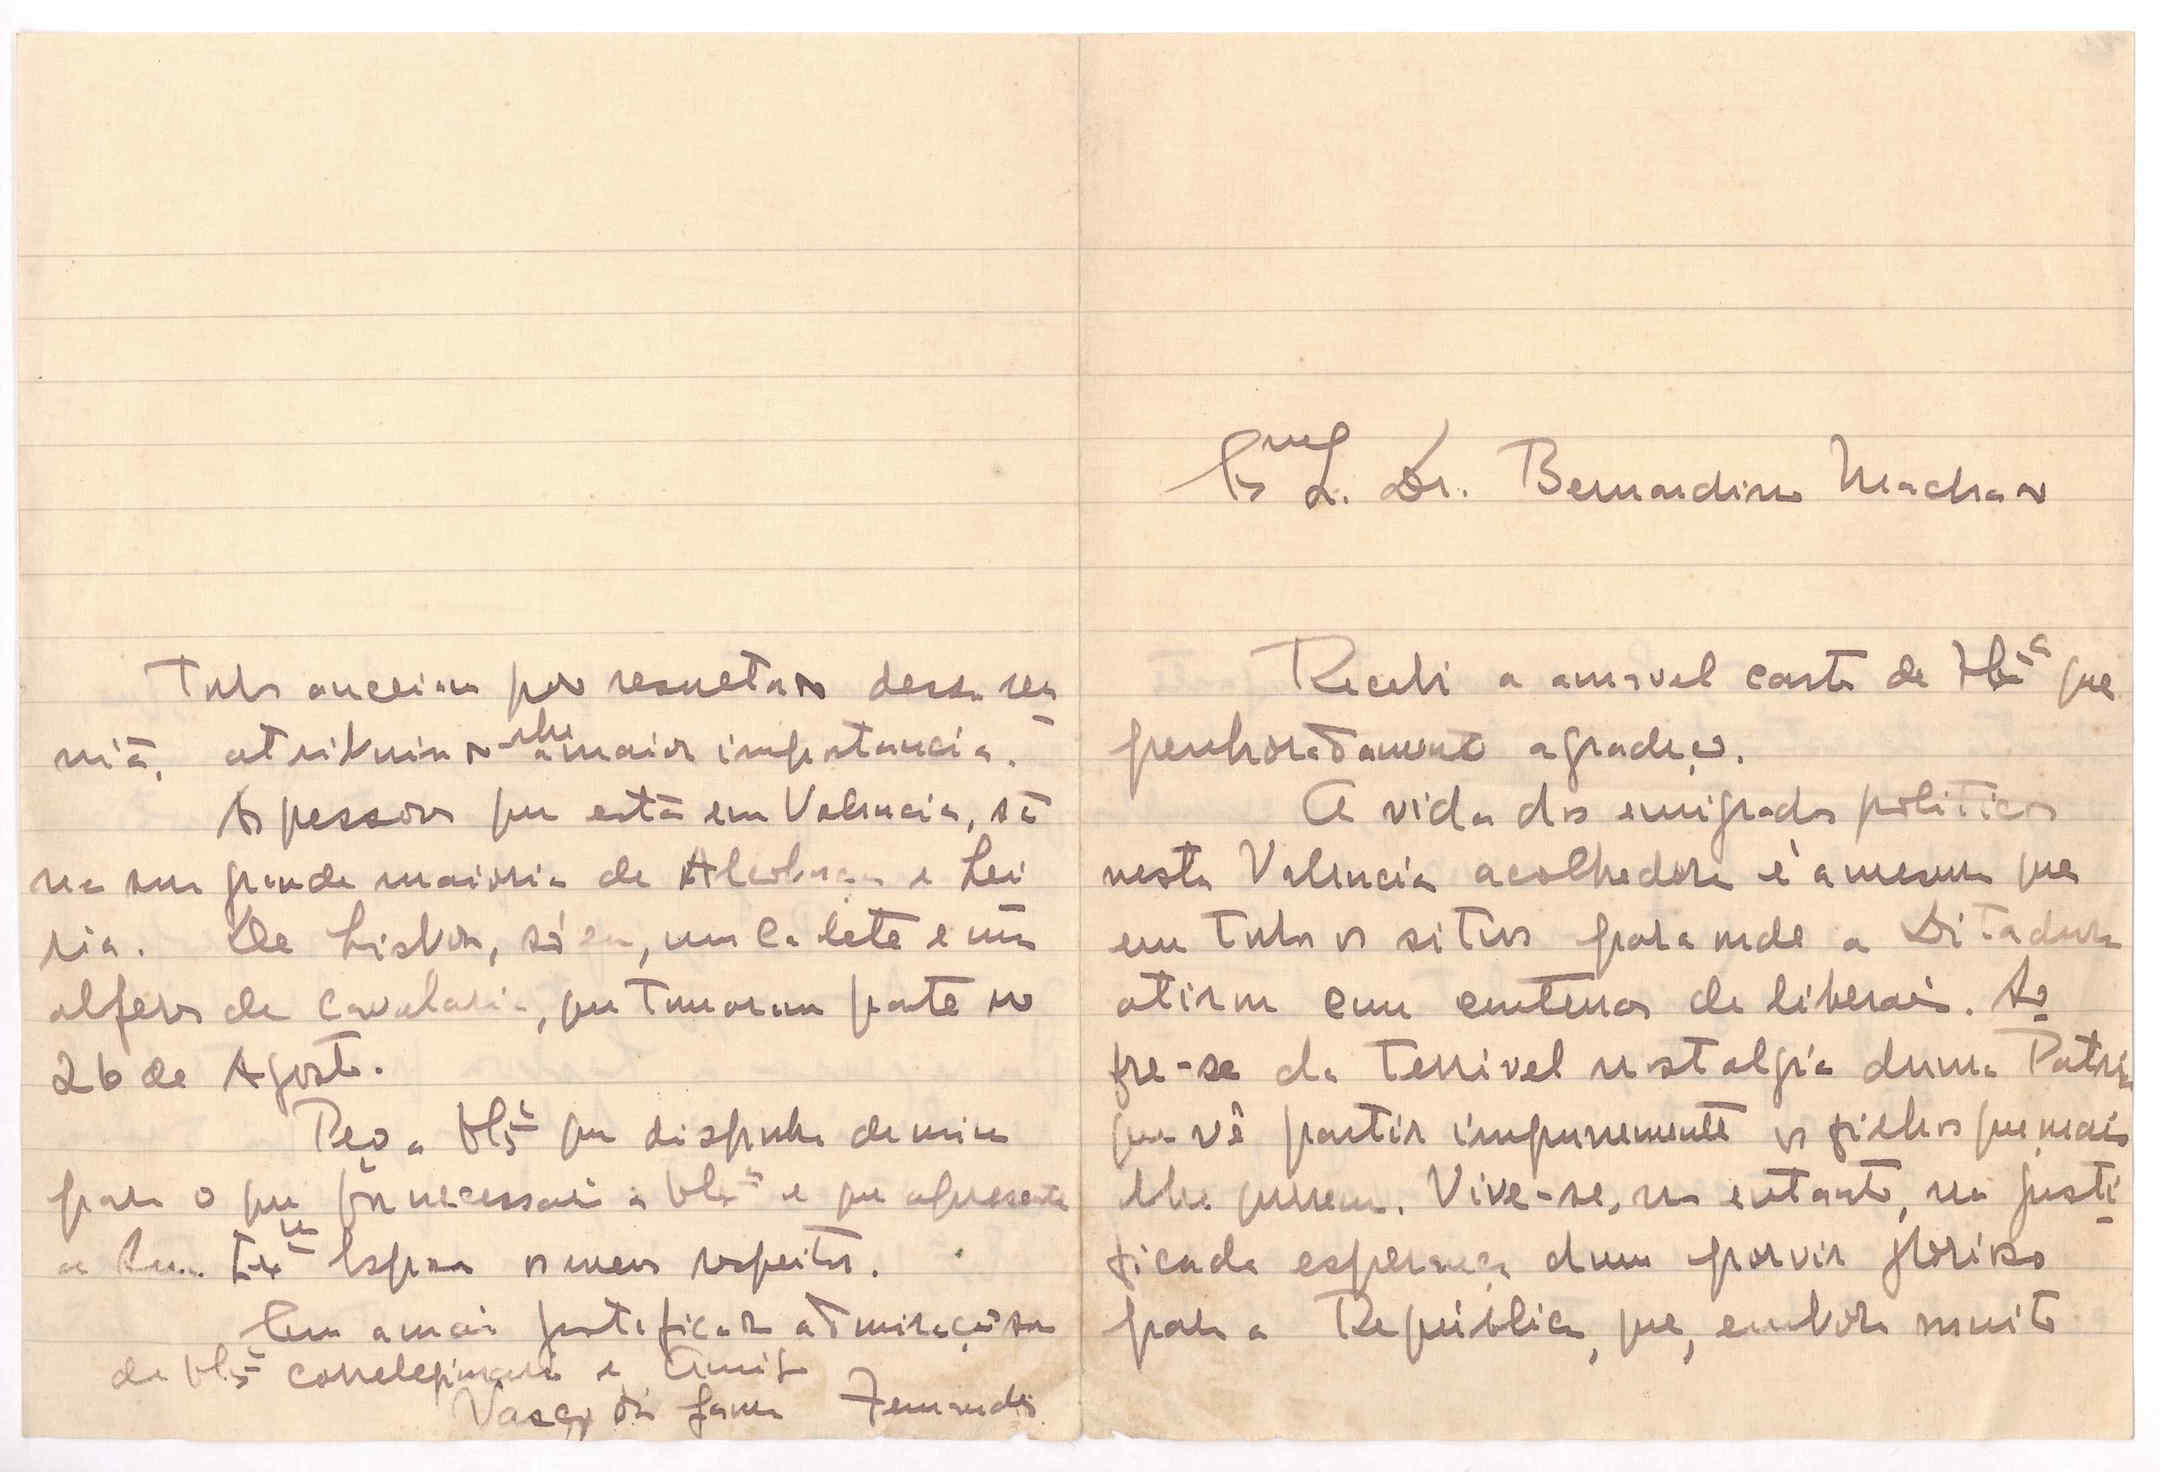 Exmo Sr. Dr. Bernardino Machado
Recebi a amavel carta de V. Ex.ª que
penhoradamente agradeço.
A vida dos emigrados politicos
nesta Valencia acolhedora é a mesma que
em todos os sitios para onde a Ditadura
atirou com centenas de liberais. So
fre-se da terrivel nostalgia duma Patria
que vê partir impunemente os filhos que mais
lhe querem. Vive-se, no entanto, na justi
ficada esperança dum porvir glorioso
para a República, que, embora muito
Todos anceiam pelo resultado dessa reu
nião, atribuindo-lhe a maior importancia.
As pessoas que estão em Valencia, são
na sua grande maioria de Alcobaça e Lei
ria. De Lisboa, só eu, um cadete e um
alferes de cavalaria, que tomaram parte no
26 de Agosto.
Peço a V. Ex.ª que disponha de mim
para o que fôr necessario a V. Ex.ª e que apresente
a Sua Ex.ma Esposa os meus respeitos.
Com a mais justificada admiração sou
de V. Ex.ª correlegionario e amigo
Vasco da Gama Fernandes